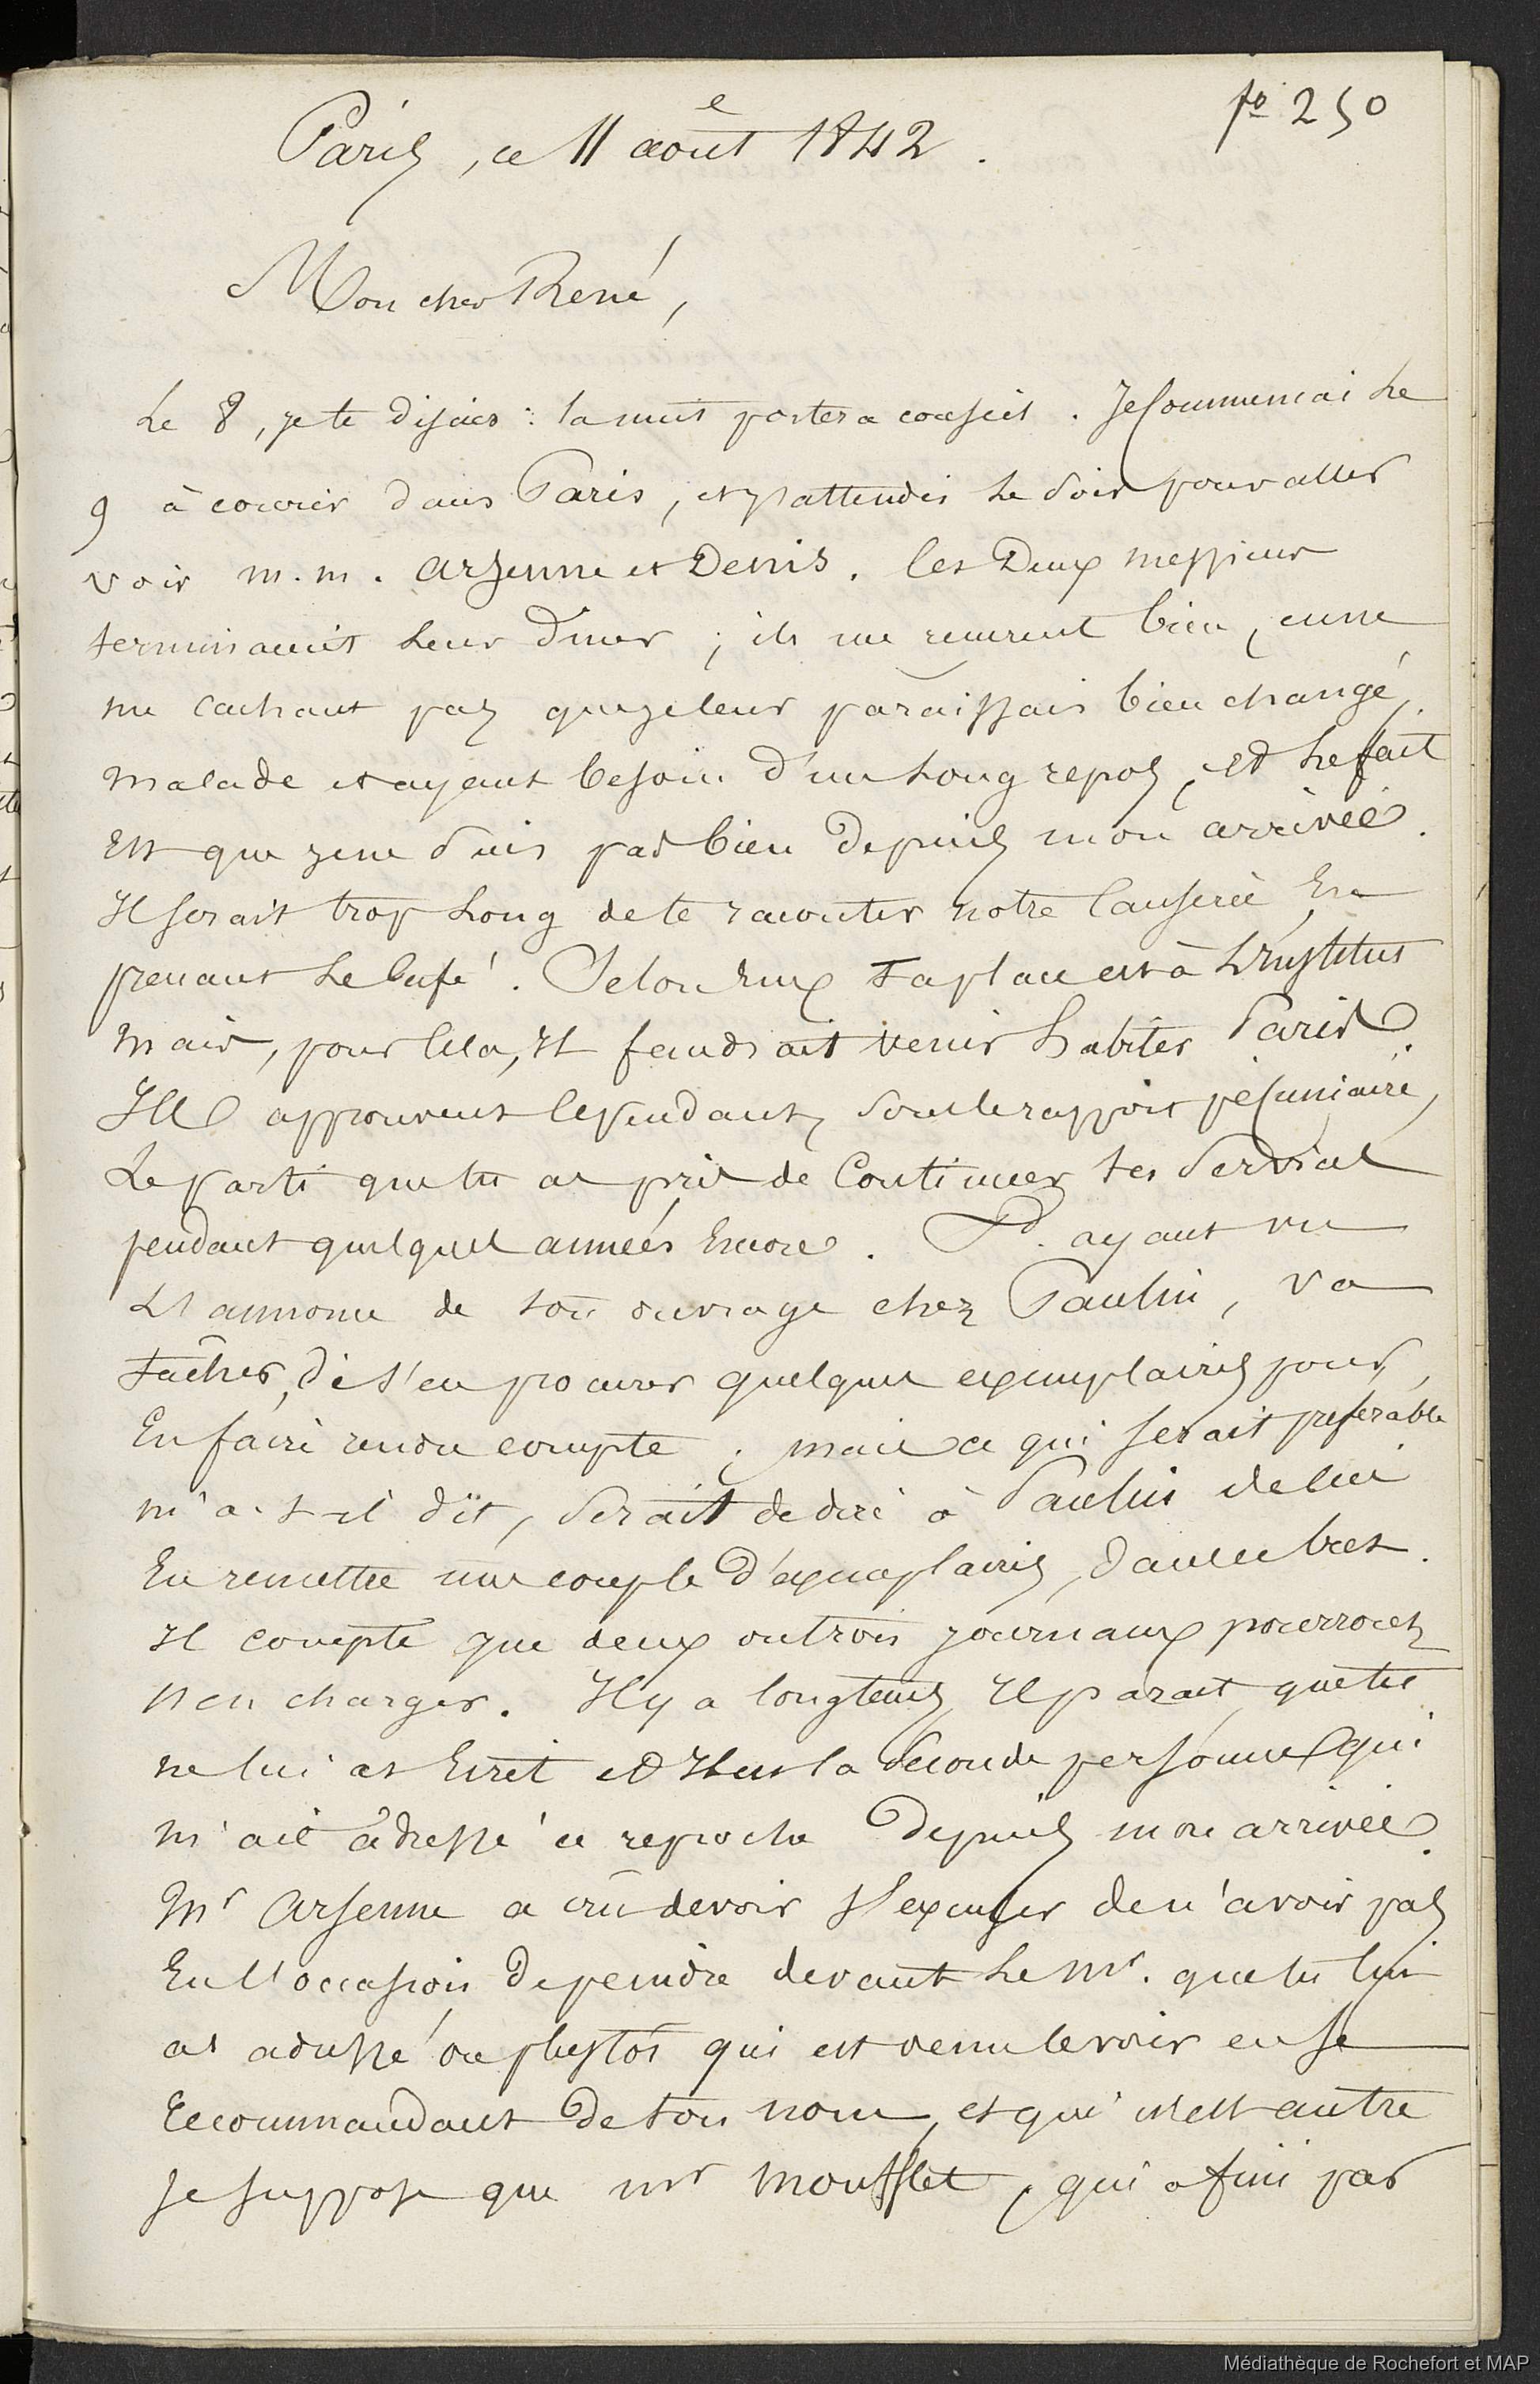 fo 250
Paris, ce 11 e août 1842.
Mon cher René,
Le 8, je te disais : la nuit portera conseil. Je commencai Le
9 à courir dans Paris, et j'attendis Le Soir pour aller
voir m.m. arsenne et Denis. Ces Deux messieurs
terminaient Leur dîner ; ils me recurent bien, en ne
me cachant pas que je leur paraissais bien changé,
malade et ayant besoin d'un Long repos, et Le fait
Est que je ne Suis pas bien Depuis mon arrivée.
Il serait trop Long de te raconter notre Causerie En
prenant Le Café. Selon Eux Ta place est à L'institut
mais, pour Cela, Il faudrait venir habiter Paris.
Ils approuvent Cependant, Sous le rapport pécuniaire,
Le parti que tu as pris de Continuer tes Services
pendant quelques années Encore. Fd. ayant vu
L'annonce de ton ouvrage chez Paulin, va
Tâcher, de s'en procurer quelques exemplaires pour,
En faire rendre compte ; mais ce qui serait préférable
m'a-t-il dit, Serait de dire à Paulin de lui
En remettre une couple d'exemplaires,
Il compte que deux ou trois journaux pourront
s'en charger. Il y a longtems, Il parait, que tu
ne lui as Ecrit et Il est la Seconde personne qui
m'ait adressé ce reproche Depuis mon arrivée.
Mr Arsenne a crû devoir s'excuser de n'avoir pas
Eu l'occasion De peindre devant Le Mr. que tu lui
as adressé ou plustôt qui est venu le voir en se
Recommandant De ton nom, et qui n'est autre
je suppose que mr moufflet, qui a fini par
Médiathèque de Rochefort et MAP